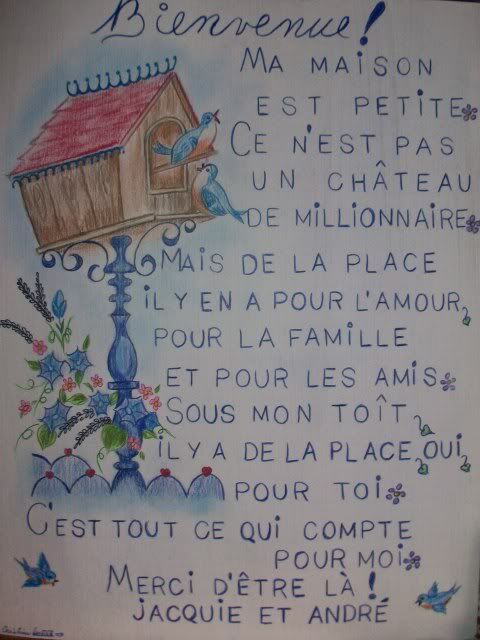 Bienvenue!
MA MAISON
EST PETITE
CE N'EST PAS
UN CHÂTEAU
DE MILLIONNAIRE
MAIS DE LA PLACE
IL Y EN A POUR L'AMOUR,
POUR LA FAMILLE
ET POUR LES AMIS
SOUS MON TOÎT
IL Y A DE LA PLACE, OUI,
POUR TOI
C'EST TOUT CE QUI COMPTE
POUR MOI
MERCI D'ÊTRE LÀ!
JACQUIE ET ANDRÉ